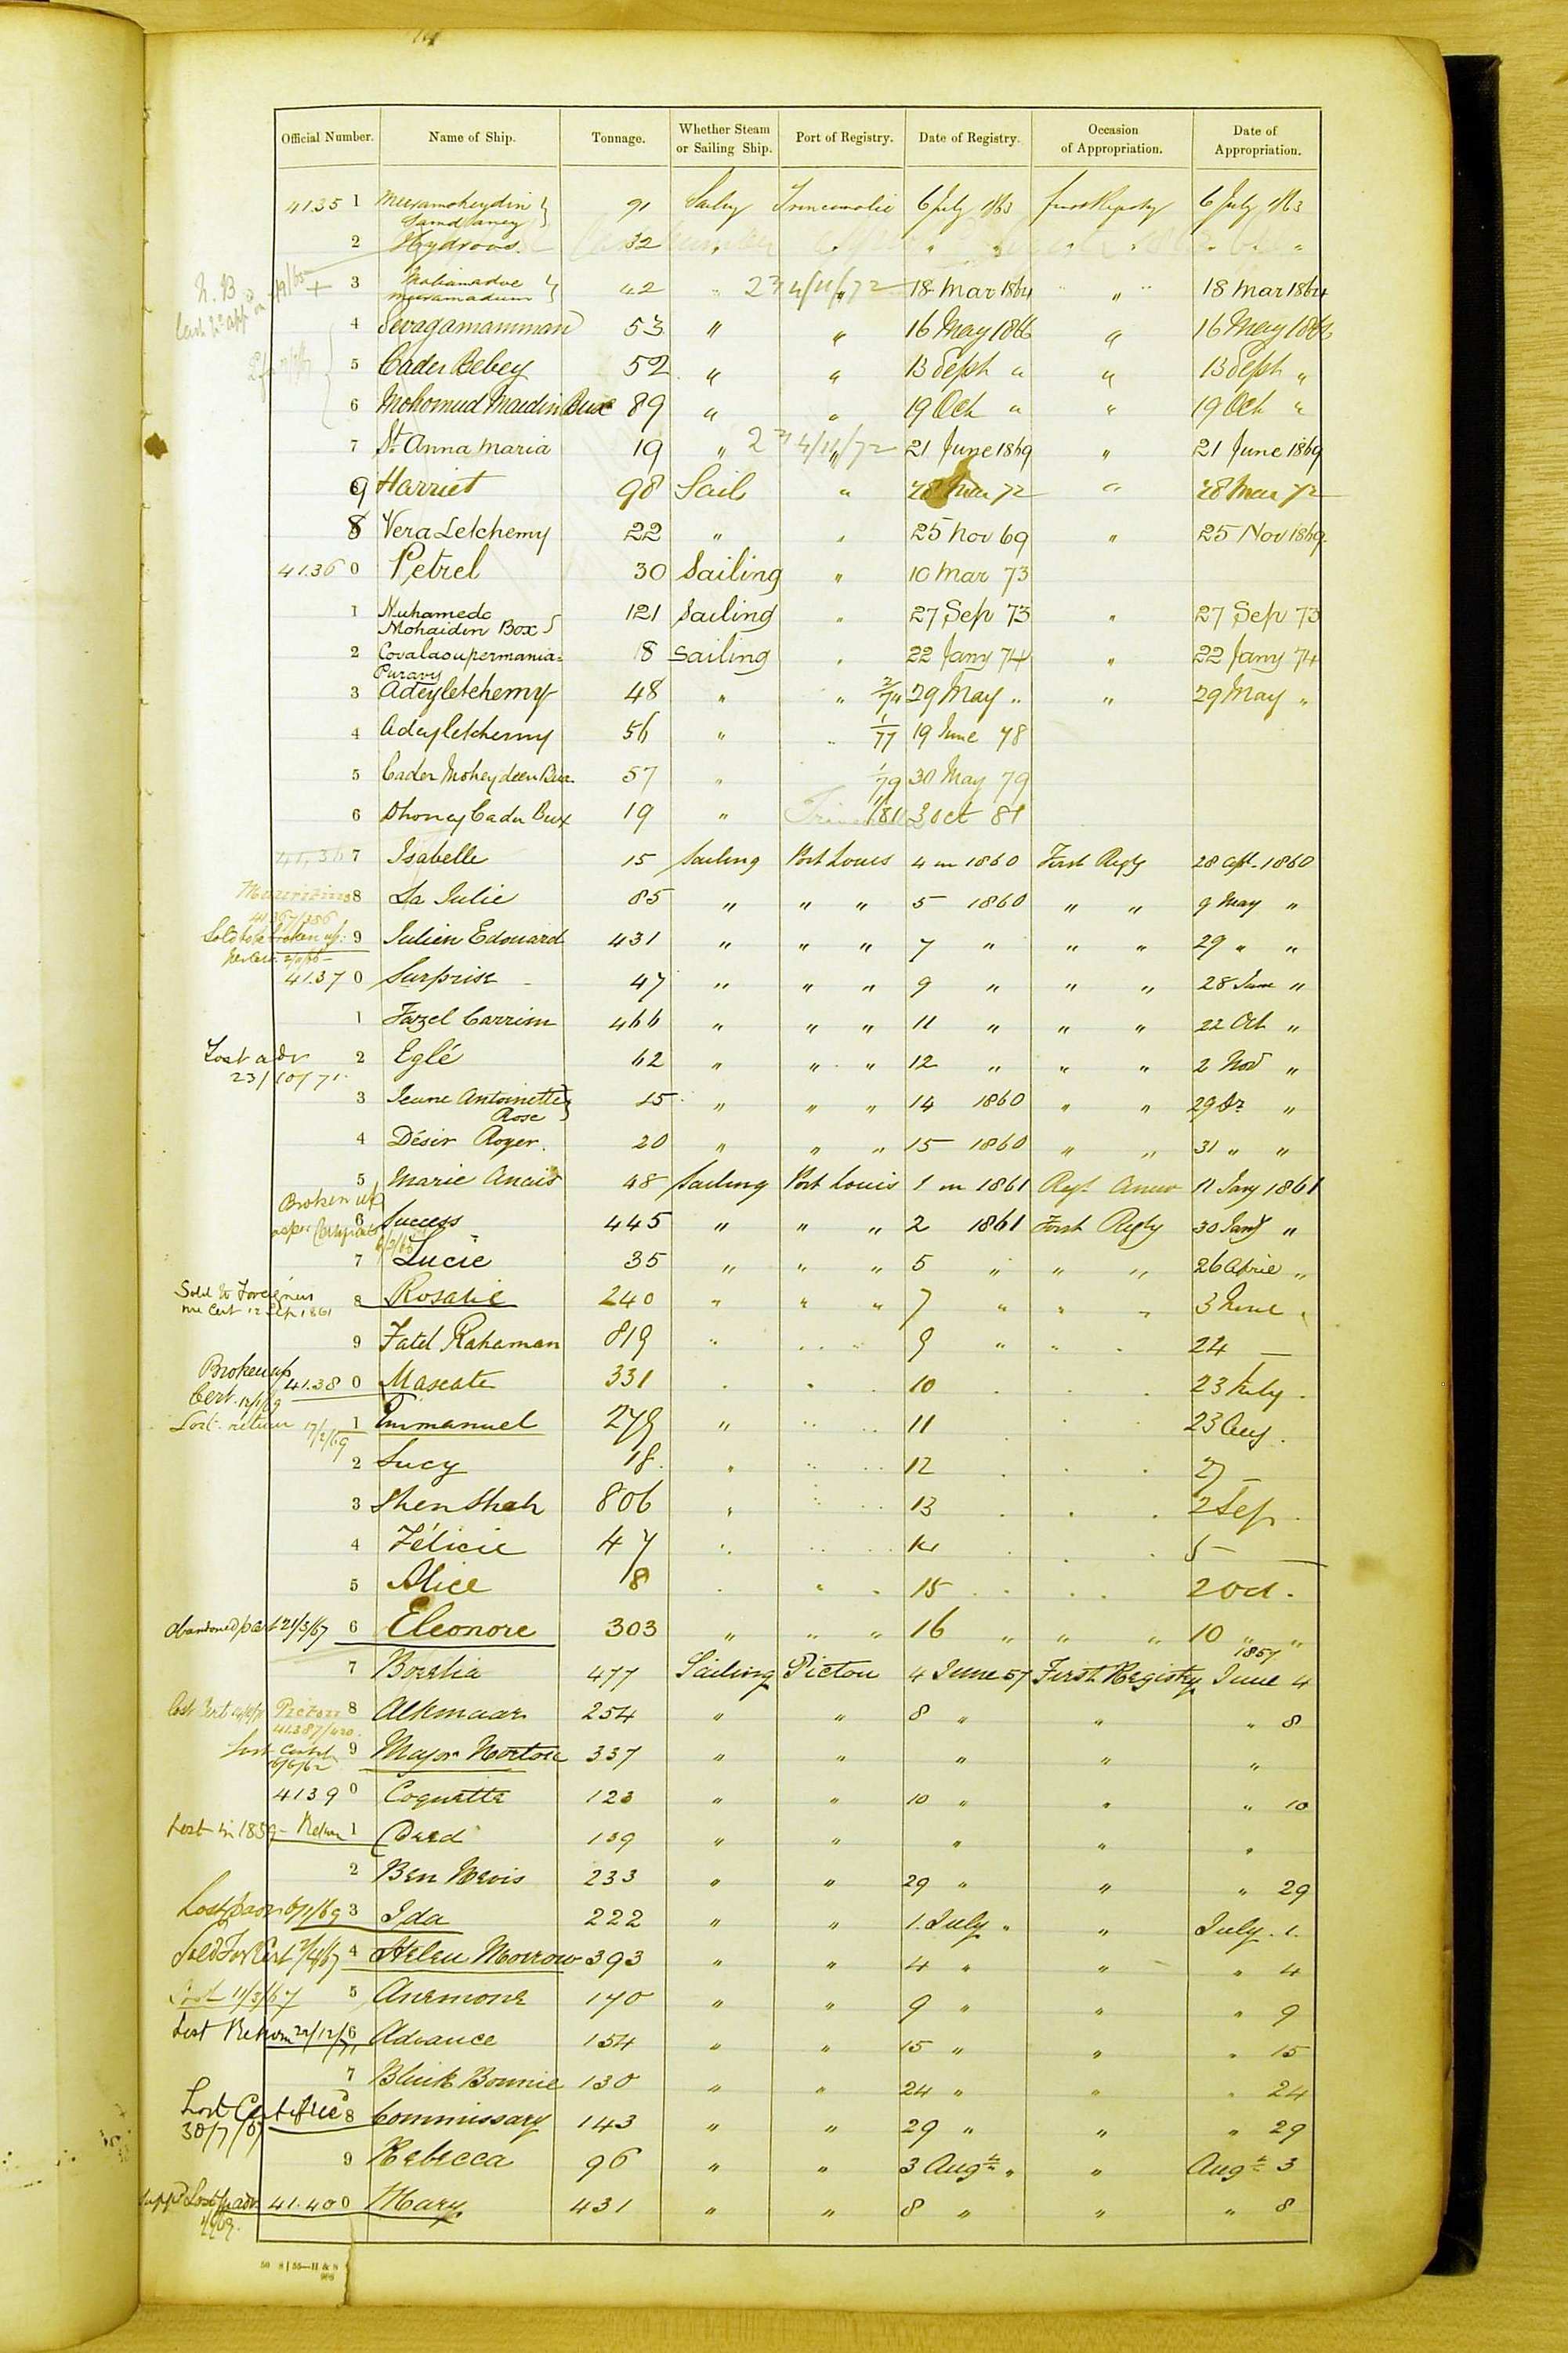 Official Number. Name of Ship. Tonnage. Whether Steam or Sailing Ship. Port of Registry. Date of Registry. Occasion of Appropriation. Date of Appropriation.
4135 1 Meeramoheydin 91 Trincomalie 6 July 1863 6 July 1863
2 Hydroos 32 " "
3 42 " 4/11/72 18 Mar 1864 " 18 Mar 1864
4 Sevagamamman 53 " " 16 May 1866 " 16 May 1866
5 Cader Bebey 52 " " 13 Sept " " 13 Sept "
6 Mohomud Maidin Bux 89 " " 19 Oct " " 19 Oct "
7 St. Anna Maria 19 " 4/11/72 21 June 1869 " 21 June 1869
9 Harriet 98 Sail " 28 Mar 72 " 28 Mar 72
8 Vera Letchemy 22 " " 25 Nov 69 " 25 Nov 1869
4136 0 Petrel 30 Sailing " 10 Mar 73
1 Muhamedo Mohaidin Box 121 Sailing " 27 Sep 73 " 27 Sep 73
2 Covalasupermania= Puravy 8 Sailing " 22 Jany 74 " 22 Jany 74
3 Adeyletchemy 48 " " 2/74 29 May " " 29 May "
4 Adeyletchemy 56 " " 1/77 19 June 78
5 Cader Moheydeen Bux 57 " 1/79 30 May 79
6 Dhoney Cader Bux 19 " 1/81 3 Oct 81
7 Isabelle 15 Sailing Port Louis 4 in 1860 First Regy 28 Apl. 1860
Mauritius 8 La Julie 85 " " " 5 1860 " " 9 May "
9 Julien Edouard 431 " " " 7 " " " 29 " "
41.37 0 Surprise 47 " " " 9 " " " 28 June "
1 Fazel Carrim 466 " " " 11 " " " 22 Oct "
Lost adv 23/10/71 2 Eglé 62 " " " 12 " " " 2 Nov "
3 Jeune Antoinette Rose 15 " " " 14 1860 " " 29 "
4 Désir Roger 20 " " " 15 1860 " " 31 " "
5 Marie Anais 48 Sailing Port Louis 1 in 1861 Regt Anew 11 Jany 1861
Broken up as per Certificate 6 Success 445 " " " 2 1861 First Regty 30 Jany "
7 Lucie 35 " " " 5 " " " 26 April "
Sold to Foreigners 12 Sep 1861 8 Rosalie 240 " " " 7 " " " 3 June "
9 Fatel Rahaman 819 " 9 " " 24 —
Broken up Cert. 41.38 0 Mascate 331 10 23 July
Lost return 17/2/69 1 Emmanuel 279 " 11 23 Aug
2 Lucy 18 " 12 27 —
3 Shen Shah 806 " 13 2 Sep
4 Félicie 47 " 14 5 —
5 Alice 8 15 2 Oct
Abandoned 21/3/67 6 Eleonore 303 " " " 16 " " " 10 " "
1857
7 477 Sailing Pictou 4 June 57 First Registry June 4
8 Alkmaar 254 " " 8 " " " 8
9 Major Norton 337 " " " " "
4139 0 Coquette 123 " " 10 " " " 10
Lost in 1859 – Return 1 139 " " " " "
2 Ben Nevis 233 " " 29 " " " 29
3 Ida 222 " " 1 July " " July 1
4 Helen Morrow 393 " " 4 " " " 4
Lost 11/3/67 5 Anemone 170 " " 9 " " " 9
Lost Return 22/12/71 6 Advance 154 " " 15 " " " 15
7 Blink Bonnie 130 " " 24 " " " 24
Lost 30/7/67 8 Commissary 143 " " 29 " " " 29
9 Rebecca 96 " " 3 Augt " " Augt 3
41.40 0 Mary 431 " " 8 " " " 8